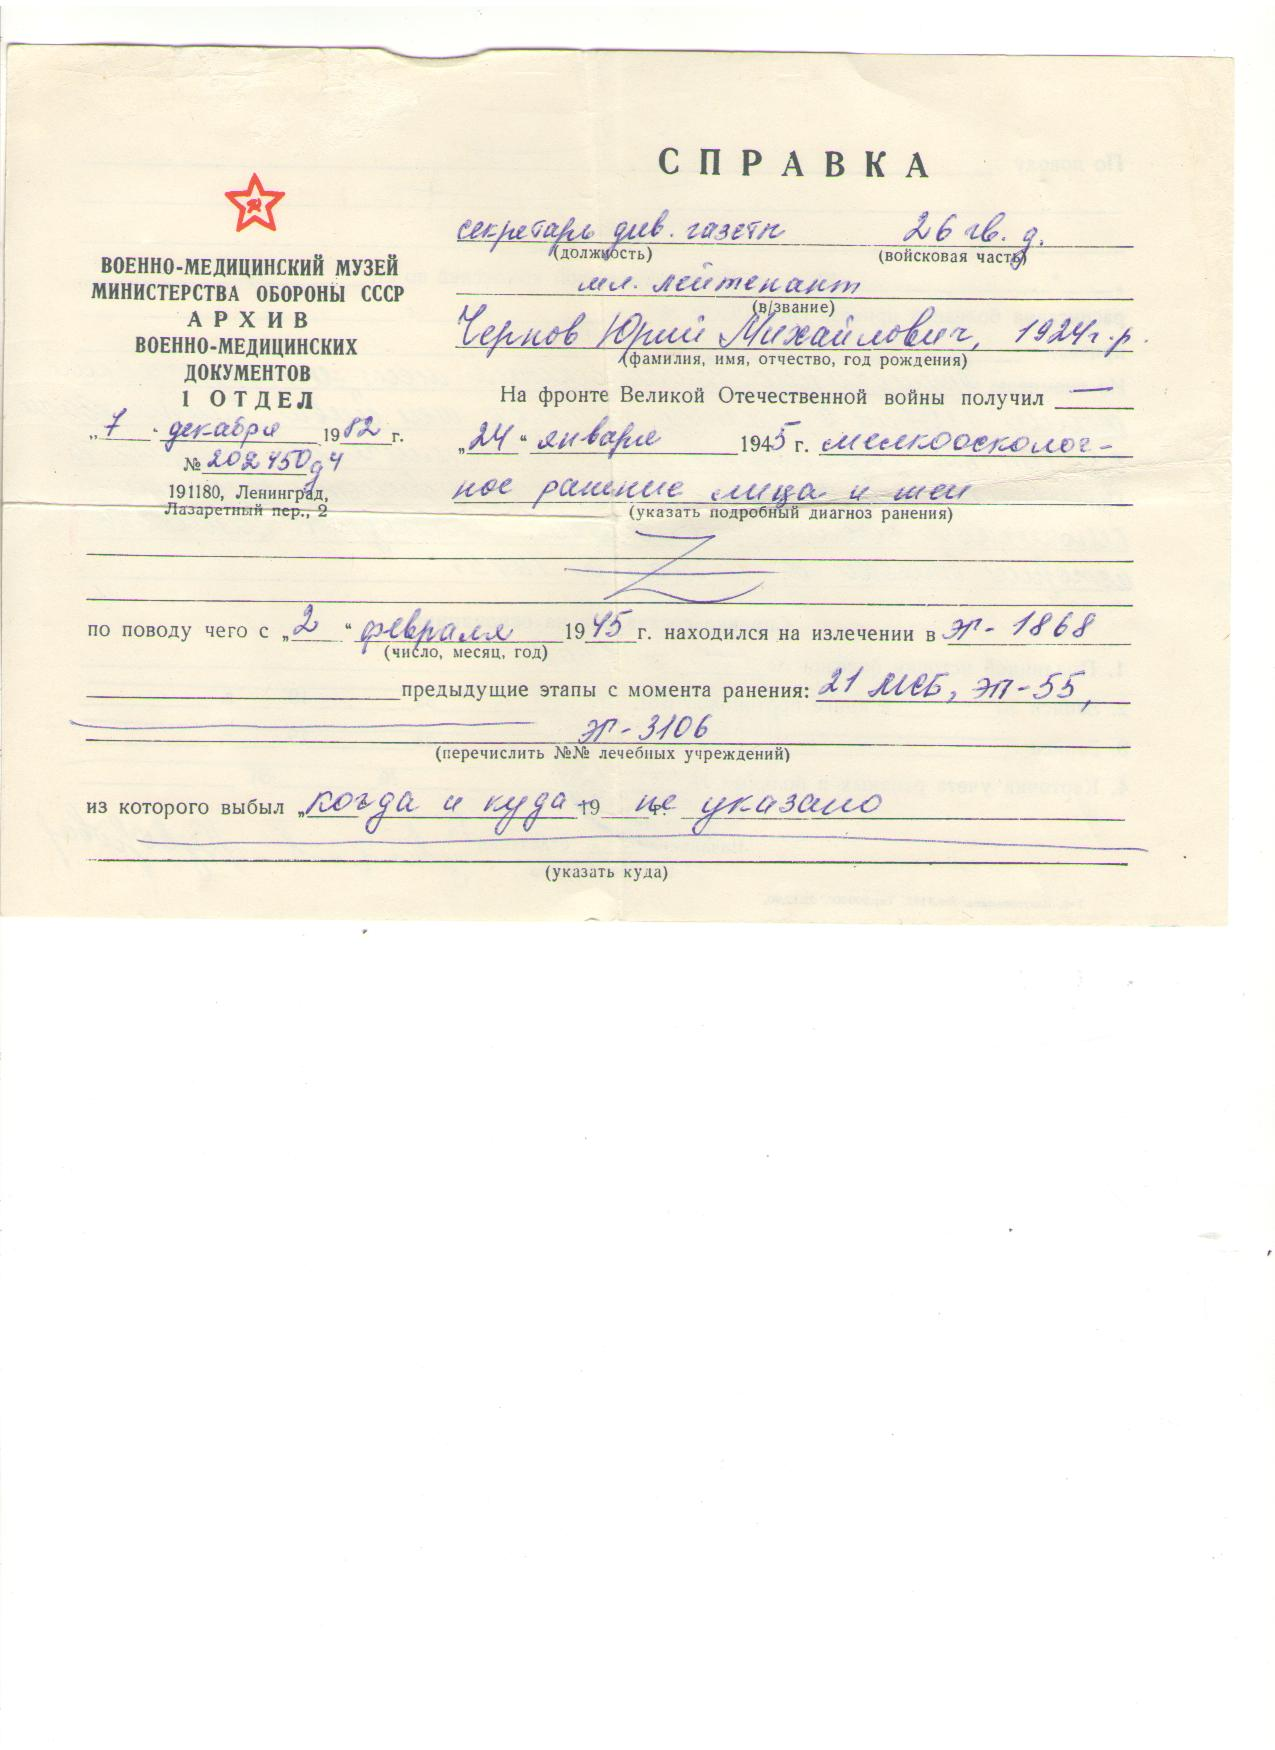 СПРАВКА
ВОЕННО-МЕДИЦИНСКИЙ МУЗЕЙ
МИНИСТЕРСТВА ОБОРОНЫ СССР
АРХИВ
ВОЕННО-МЕДИЦИНСКИХ
ДОКУМЕНТОВ
1 ОТДЕЛ
„7" декабря 1982 г.
№ 202450д4
191180, Ленинград,
Лазаретный пер., 2
секретарь див. газеты 26 гв. д.
(должность) (войсковая часть)
мл. лейтенант
(в/звание)
Чернов Юрий Михайлович, 1924 г.р.
(фамилия, имя, отчество, год рождения)
На фронте Великой Отечественной войны получил —
„24" января 1945 г. мелкоосколоч-
ное ранение лица и шеи
(указать подробный диагноз ранения)
по поводу чего с „2" февраля 1945 г. находился на излечении в ЭГ-1868
(число, месяц, год)
предыдущие этапы с момента ранения: 21 МСБ, ЭП-55,
ЭГ-3106
(перечислить №№ лечебных учреждений)
из которого выбыл „когда и куда 19 г. не указано
(указать куда)